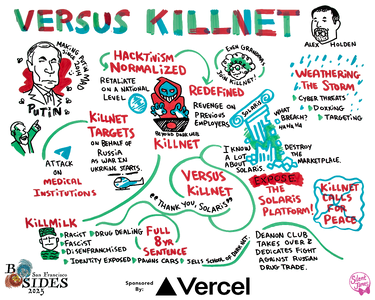 VERSUS KILLNET
ALEX HOLDEN
MAKING PUTIN MAD
SINCE 2014
PUTIN
HACKTIVISM
NORMALIZED
RETALIATE
ON A NATIONAL
LEVEL
EVEN GRANDMAS
JOIN KILLNET!
REDEFINED
REVENGE ON
PREVIOUS
EMPLOYERS
BEYOND DARK WEB
KILLNET
SOLARIS
WHAT
BREACH?
HA HA HA
WEATHERING
THE STORM
CYBER THREATS
DOXXING
TARGETING
KILLNET
TARGETS
ON BEHALF OF
RUSSIA
AS WAR IN
UKRAINE STARTS
ATTACK
ON
MEDICAL
INSTITUTIONS
I KNOW
A LOT
ABOUT
SOLARIS.
DESTROY
THE
MARKETPLACE.
VERSUS
KILLNET
"THANK YOU, SOLARIS"
EXPOSE
THE
SOLARIS
PLATFORM!
KILLNET
CALLS
FOR
PEACE
KILLMILK
RACIST
DRUG DEALING
FASCIST
DISENFRANCHISED
IDENTITY EXPOSED
PAWNS CARS
SELLS SCHOOL OF DARK NET.
FULL
8 YR
SENTENCE
DEANON CLUB
TAKES OVER &
DEDICATES FIGHT
AGAINST RUSSIAN
DRUG TRADE.
BSIDES
San Francisco
2023
Sponsored
By:
Vercel